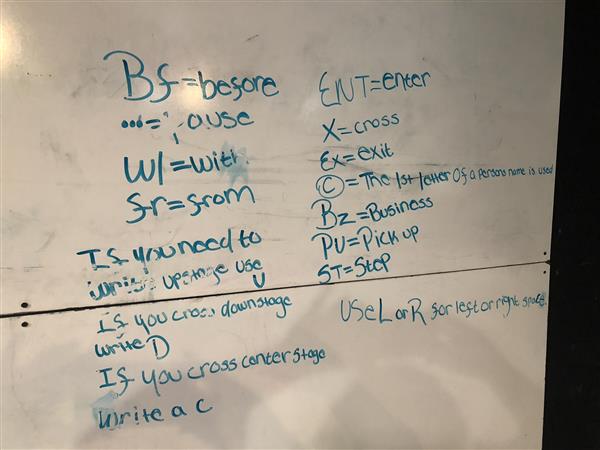 Bf=before
...= ause
W/=with
fr=from
If you need to
write upstage use
U
If you cross downstage
write D
If you cross center stage
write a C
ENT=enter
X=cross
Ex=exit
Ⓒ=The 1st letter Of a persons name is used
Bz=Business
PU=Pick up
ST=Stop
USE L or R for left or right